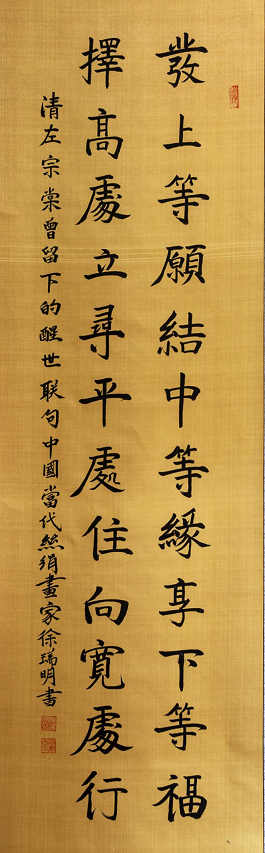 發上等願結中等緣享下等福
擇高處立尋平處住向寬處行
清左宗棠曾留下的醒世联句中國當代絲絹畫家徐瑞明書